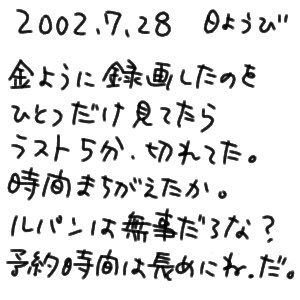 2002.7.28 日ようび
金ように録画したのを
ひとつだけ見てたら
ラスト5分、切れてた。
時間まちがえたか。
ルパンは無事だろな?
予約時間は長めにね。だ。